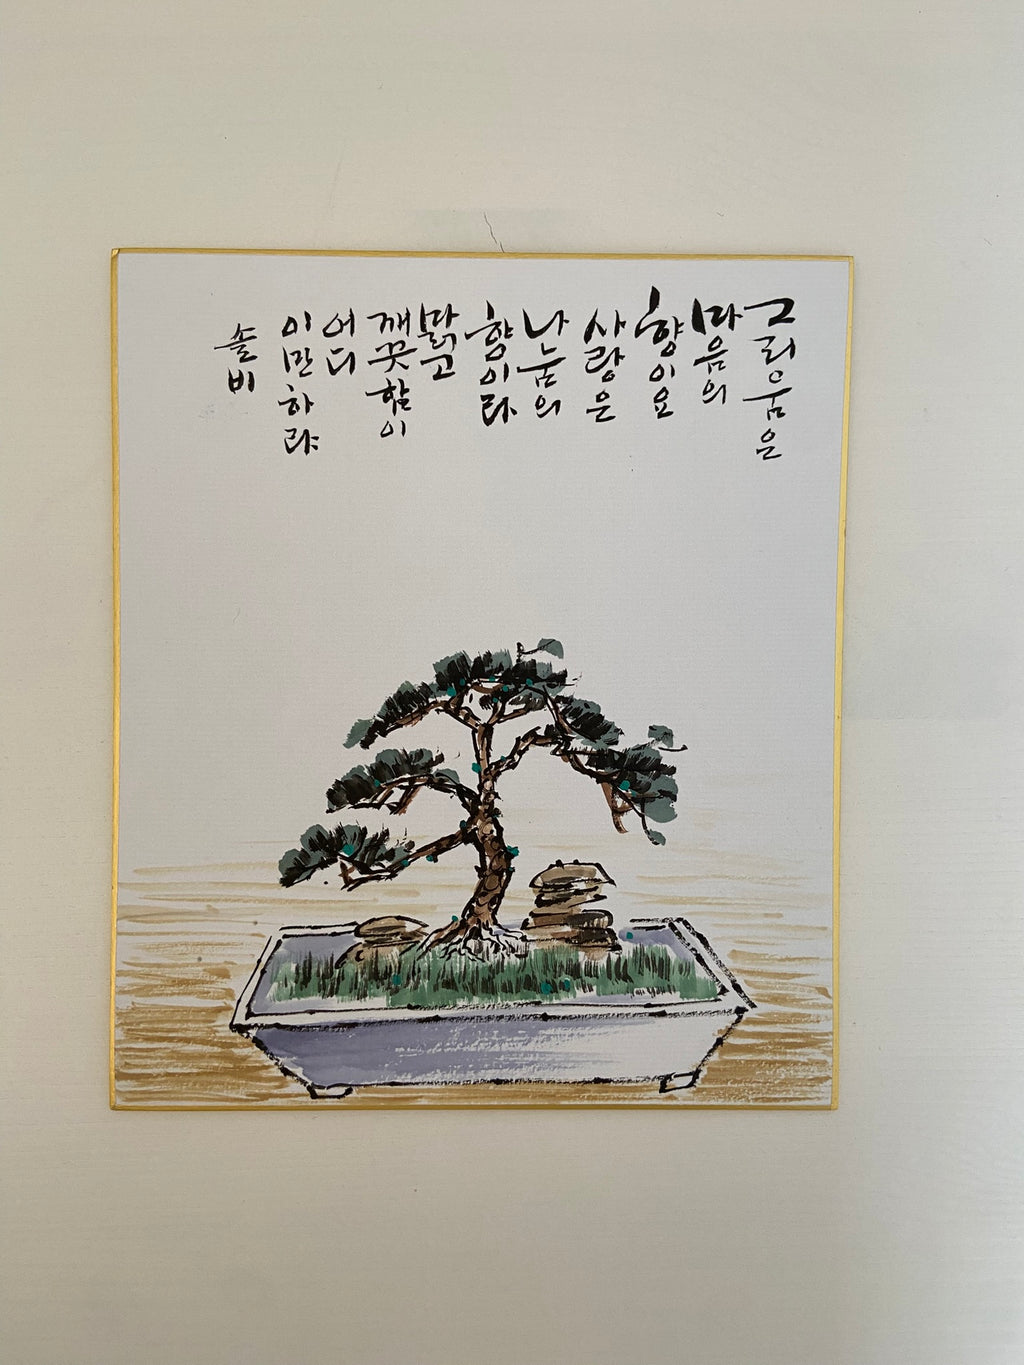 그리움은
마음의
향이요
사랑은
나눔의
향이라
맑고
깨끗함이
어디
이만하랴
솔비